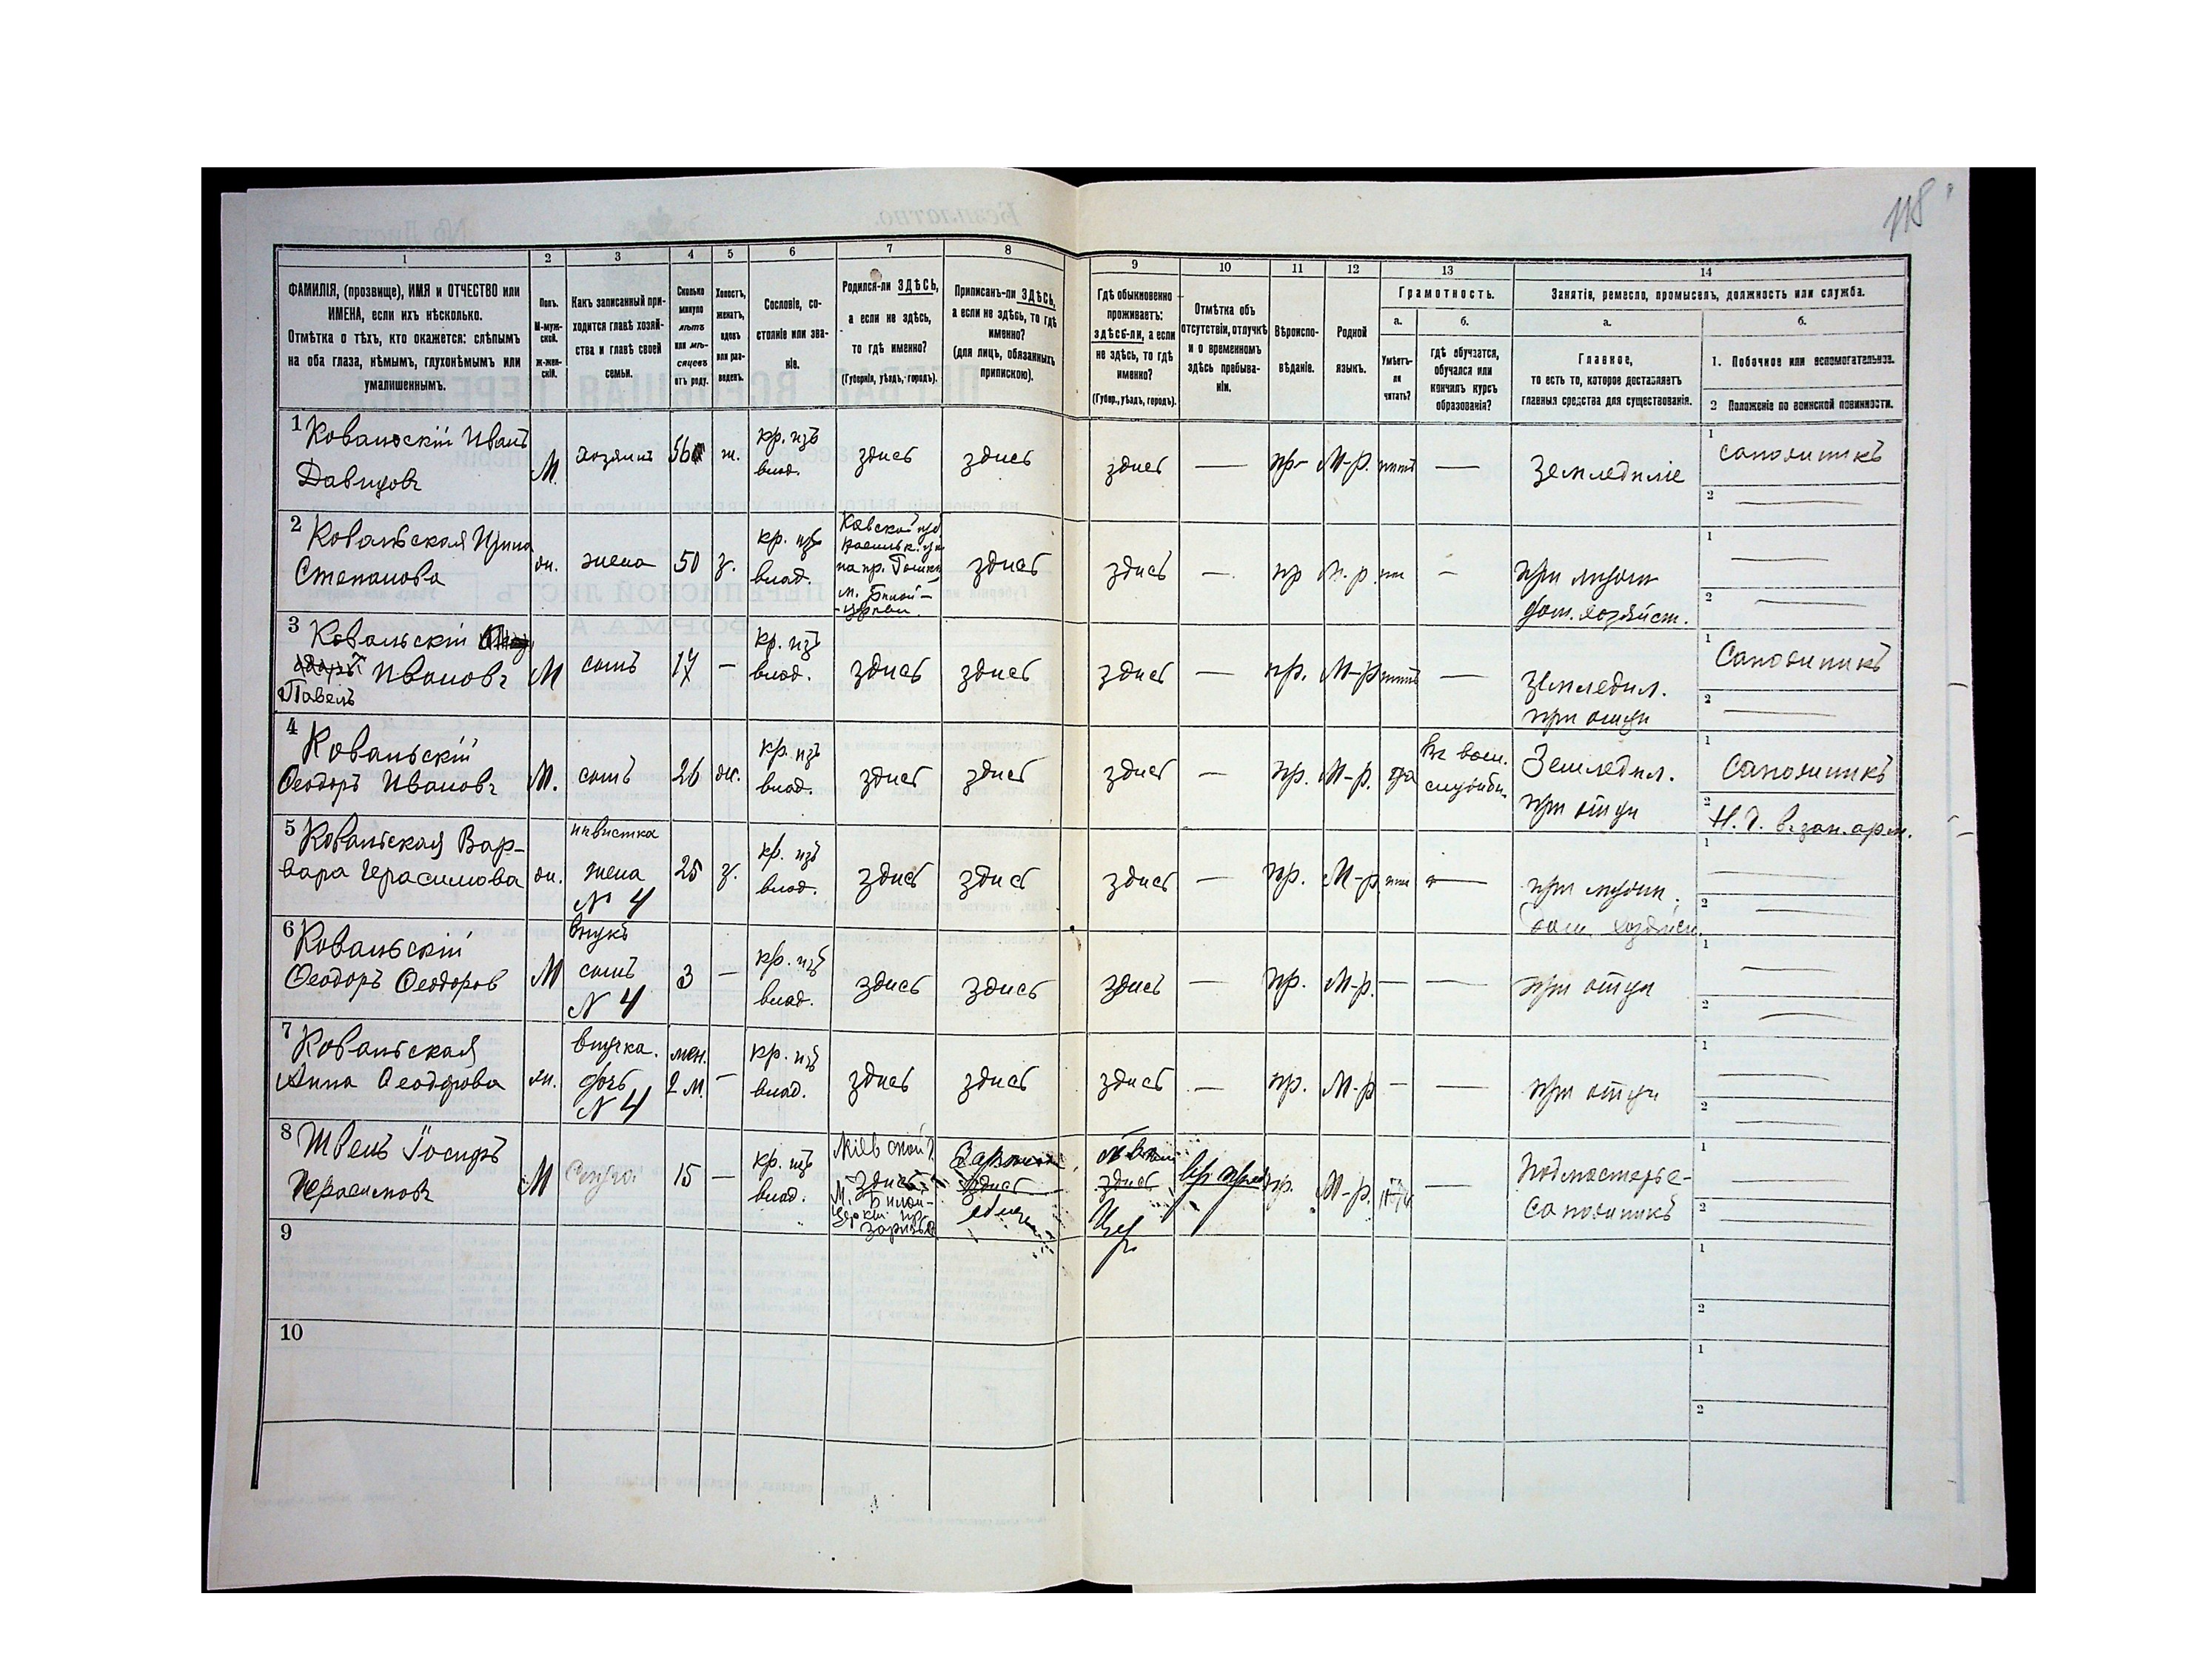 118
1
2
3
4
5
6
7
8
9
10
11
12
13
14
ФАМИЛІЯ, (прозвище), ИМЯ и ОТЧЕСТВО или
ИМЕНА, если ихъ нѣсколько.
Отмѣтка о тѣхъ, кто окажется: слѣпымъ
на оба глаза, нѣмымъ, глухонѣмымъ или
умалишеннымъ.
Полъ.
М-муж-
ской.
Ж-жен-
скій.
Какъ записанный при-
ходится главѣ хозяй-
ства и главѣ своей
семьи.
Сколько
минуло
лѣтъ
или мѣ-
сяцевъ
отъ роду.
Холостъ,
женатъ,
вдовъ
или раз-
веденъ.
Сословіе, со-
стояніе или зва-
ніе.
Родился-ли ЗДѢСЬ,
а если не здѣсь,
то гдѣ именно?
(Губернія, уѣздъ, городъ).
Приписанъ-ли ЗДѢСЬ,
а если не здѣсь, то гдѣ
именно?
(для лицъ, обязанныхъ
припискою).
Гдѣ обыкновенно
проживаетъ:
здѣсь-ли, а если
не здѣсь, то гдѣ
именно?
(Губер., уѣздъ, городъ).
Отмѣтка объ
отсутствіи, отлучкѣ
и о временномъ
здѣсь пребыва-
ніи.
Вѣроиспо-
вѣданіе.
Родной
языкъ.
Грамотность.
а.
б.
Умѣетъ-
ли
читать?
гдѣ обучается,
обучался или
кончилъ курсъ
образованія?
Занятія, ремесло, промыселъ, должность или служба.
а.
б.
Главное,
то есть то, которое доставляетъ
главныя средства для существованія.
1. Побочное или вспомогательное.
2 Положеніе по воинской повинности.
1 Ковальскій Иванъ
Давидовъ
М.
хозяинъ
56
ж.
кр. изъ
влад.
здись
здись
здись
—
пр-
М-р.
—
Земледиліе
1 сапожникъ
2 —
2 Ковальская Ирина
Степанова
жн.
жена
50
з.
кр. изъ
влад.
м. Билой-
-Церкви.
здись
здись
—
пр
М-р.
—
при мужи
дом. хозяйст.
1 —
2 —
3 Ковальскій
Ивановъ
Павелъ
М
сынъ
17
—
кр. изъ
влад.
здись
здись
здись
—
пр.
М-р
—
Земледил.
при отци
1 Сапожникъ
2 —
4 Ковальскій
Ѳеодоръ Ивановъ
М.
сынъ
26
жн.
кр. изъ
влад.
здись
здись
здись
—
пр.
М-р.
да
въ воен.
службы
Земледил.
при отци
1 Сапожникъ
2 Н. Ч. в. зап. арм.
5 Ковальская Вар-
вара Герасимова
жн.
нивистка
жена
№ 4
25
з.
кр. изъ
влад.
здись
здись
здись
—
пр.
М-р
—
при мужи.
дом. хозяйст.
1 —
2 —
6 Ковальскій
Ѳеодоръ Ѳеодоров
М
внукъ
сынъ
№ 4
3
—
кр. изъ
влад.
здись
здись
здись
—
пр.
М-р.
—
—
при отци
1 —
2 —
7 Ковальская
Анна Ѳеодорова
жн.
внучка.
дочь
№ 4
мен.
2 м.
—
кр. изъ
влад.
здись
здись
здись
—
пр.
М-р
—
—
при отци
1 —
2 —
8 Швецъ Іосифъ
Герасимовъ
М
Слуга.
15
—
кр. изъ
влад.
Кіевской г.
здись
М. Билой-
здись
здись
Цер.
пр.
М-р.
—
Подмастерье-
Сапожникъ
1 —
2 —
9
1
2
10
1
2